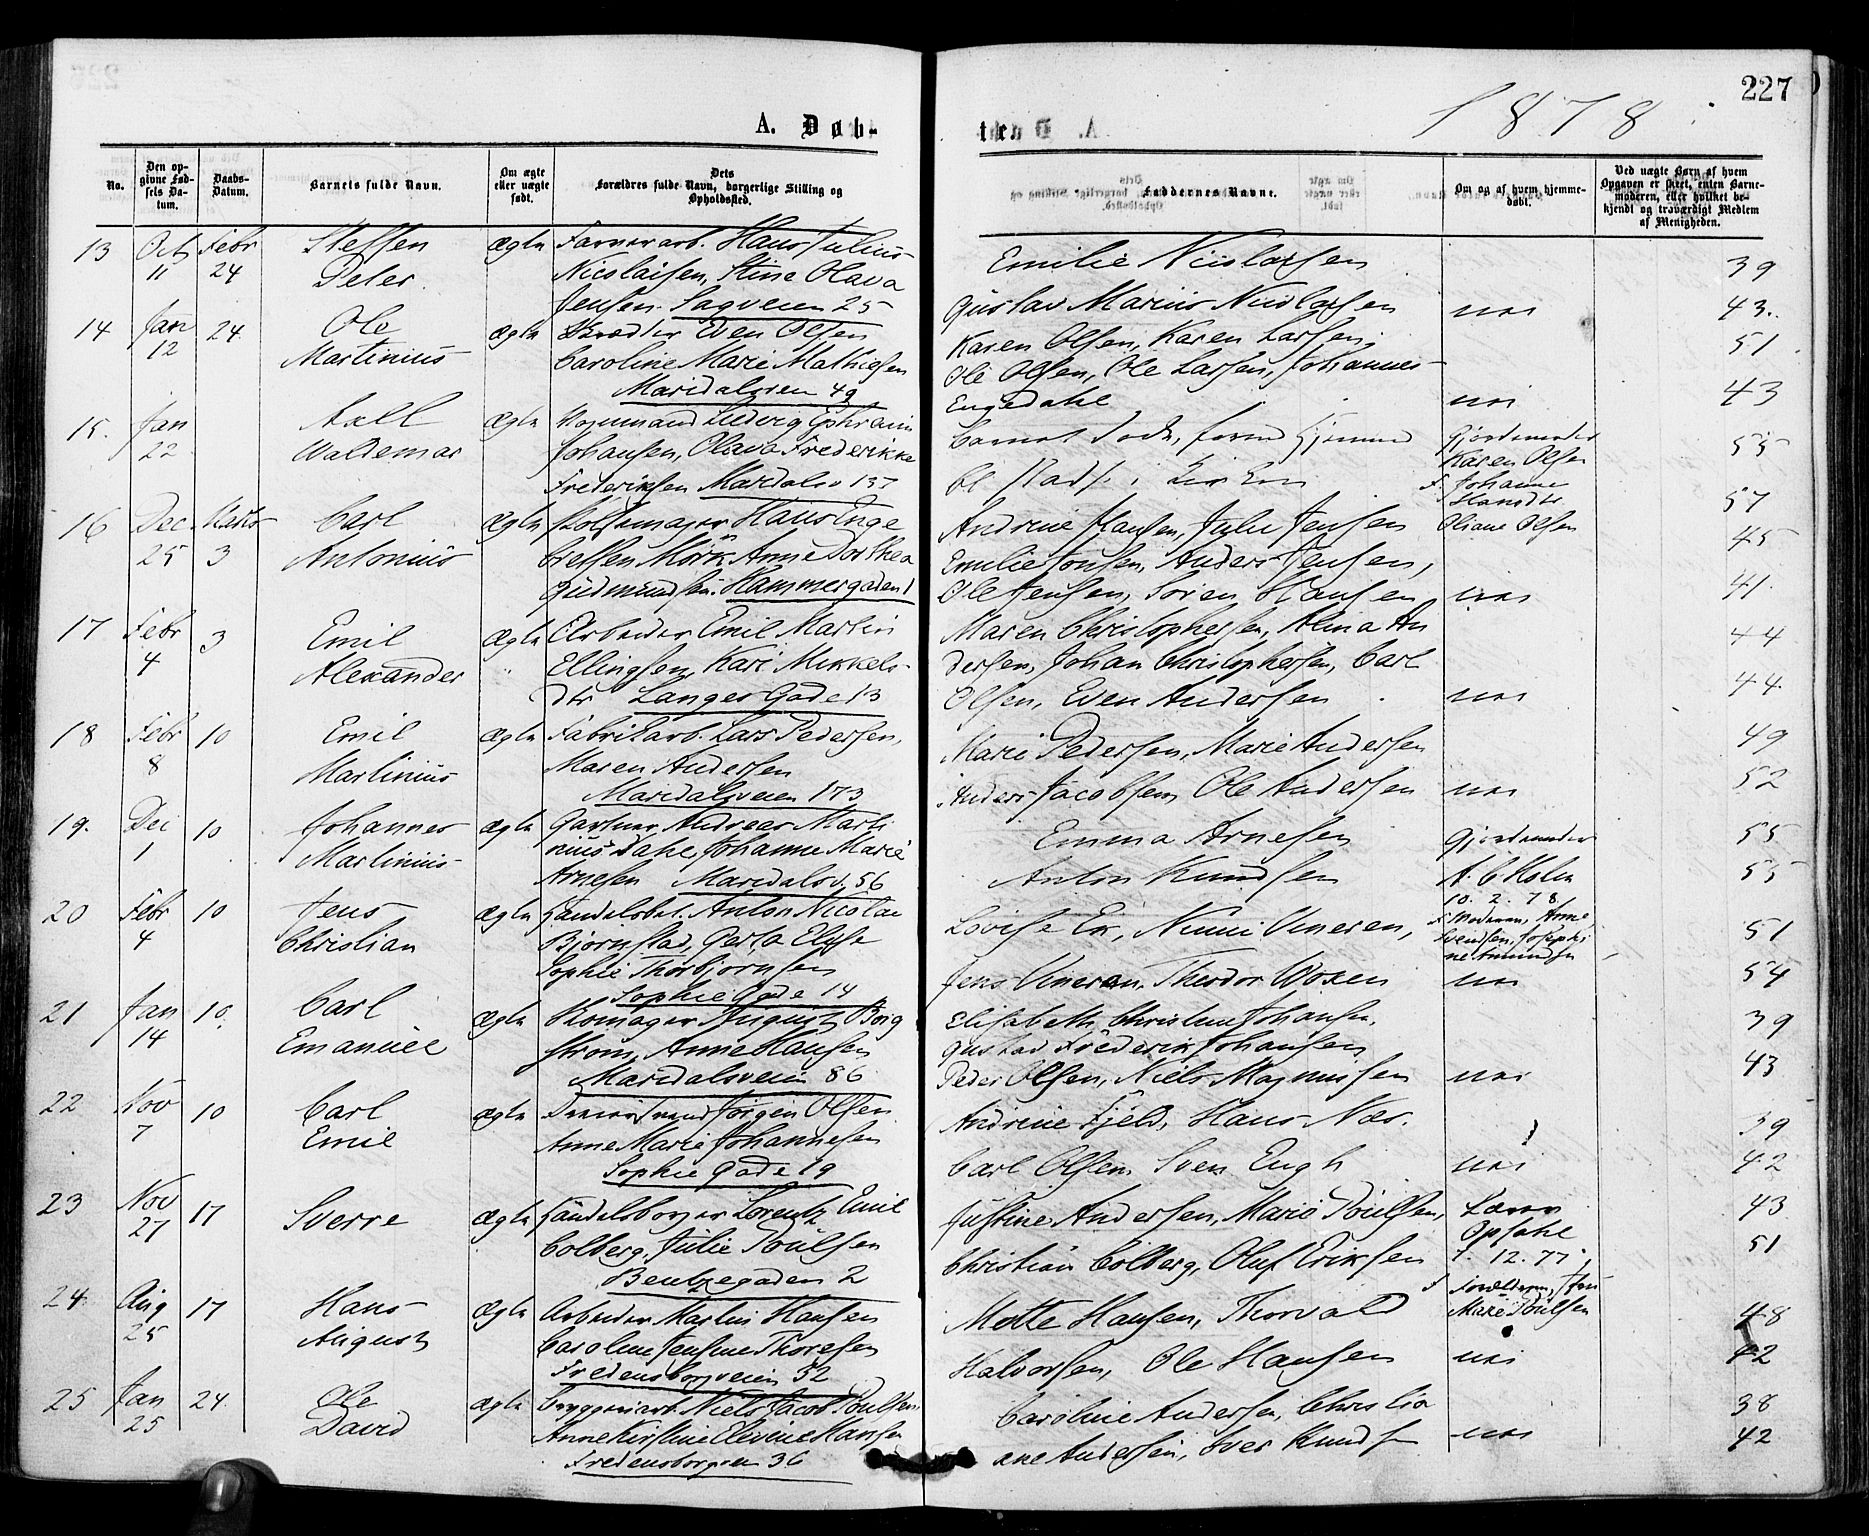 227
1878
A. Døb-
te.
No.
Den op-
givne Fød-
sels Da-
tum.
Daabs-
Datum.
Barnets fulde Navn.
Om ægte
eller uægte
født.
Dets
Forældres fulde Navn, borgerlige Stilling og
Opholdssted.
Faddernes Navne.
Om og af hvem hjemme-
døbt.
Ved uægte Børn af hvem
Opgaven er skeet, enten Barne-
moderen, eller hvilket be-
kjendt og troværdigt Medlem
af Menigheden.
13 Oct Febr Steffen ægte Farverarb. Hans Julius
11 24 Peter. Nicolaisen, Stine Olava
Jensen. Sagveien 25
Emilie Nicolaisen 39
Gustav Marius Nicolaisen nei 43.
14 Jan 24. Ole ægte Skrædder Even Olsen
12 Martinius Caroline Marie Mathiesen
Maridalsveien 49
Karen Olsen, Karen Larsen, 51
Ole Olsen, Ole Larsen, Johannes
Engedahl nei 43
15. Jan Axel ægte Ludvig Ephraim
22 Waldemar Johansen, Olava Frederikke
Frederiksen Maridalsv 137
Barnet
Gjordemoder
Karen Olsen 55
f Johanne
57
Oliane Olsen
16 Dec Marts Carl ægte Hans Enge
25 3 Antonius Mörk Anne Dorthea
Gudmundsen. Hammergaden 1
Andrine Hansen, Julie Jensen
Emilie Jonsen, Anders Jensen, 45
Ole Jensen, Sören Hansen nei 41.
17 Febr 3 Emil ægte Arbeider Emil Martin
4 Alexander " Ellingsen, Kari Mikkels-
dtr Langes Gade 13
Maren Christophersen, Alina An 44
dersen, Johan Christophersen, Carl
Olsen, Even Andersen nei 44.
18 Febr 10 Emil ægte Fabrikarb. Lars Pedersen,
8 Martinius Maren Andersen
Maridalsveien 173
Marie Pedersen, Marie Andersen 49
Anders Jacobsen, Ole Andersen nei 52
19. Dec 10 Johannes ægte Gartner Andreas Marti
1 Martinius nius Dahl, Johanne Marie
Arnesen Maridalsv. 56
Emma Arnesen Gjordemoder 55
Anton Knudsen A. C Holm 55
10. 2. 78,
20 Febr 10 Jens ægte Handelsbet. Anton Nicolai
4 Christian Bjørnstad, Gerta Elise
Sophie Thorbjørnsen
Sophie Gade 14
f Moderen, Anne
Svendsen, Josephi
ne Amundsen
Lovise Ek, Ninni Vineren, 51
Jens Vineren, Theodor Woxen nei 54
21 Jan 10. Carl ægte Skomager August Borg
14 Emanuel strøm, Anne Hansen
Maridalsveien 86
Elisabeth, Christine Johansen, 39
Gustav Frederik Johansen
Peder Olsen, Niels Magnussen nei 43
22 Nov 10 Carl ægte Jørgen Olsen
7 Emil Anne Marie Johannesen
Sophie Gade 19
Andrine Fjeld, Hans Næs. 39
Carl Olsen, Sven Engh nei 42
23 Nov 17 Sverre ægte Handelsborger Lorentz Emil
27 Colberg, Julie Poulsen
Bentzegaden 2
Justine Andersen, Marie Poulsen, Lærer 43
Opsahl
Christian Colberg, Oluf Eriksen 7. 12. 77, 51
f Forældrene,
Marie Poulsen
24 Aug 17 Hans ægte Arbeider Martin Hansen
25 August Caroline Jensine Thoresen
Fredensborgveien 52
Mette Hansen, Thorvald 48
Halvorsen, Ole Hansen nei 42
25 Jan 24. Ole ægte Bryggeriarb. Niels Jacob Poulsen,
25 David Anne Kirstine Elevine Hansen
Fredensborgveien 36
Caroline Andersen, Christia 38
ane Andersen, Iver Knudsen nei 42